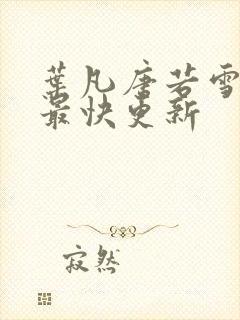 葉凡唐若雪
最快更新
寂然